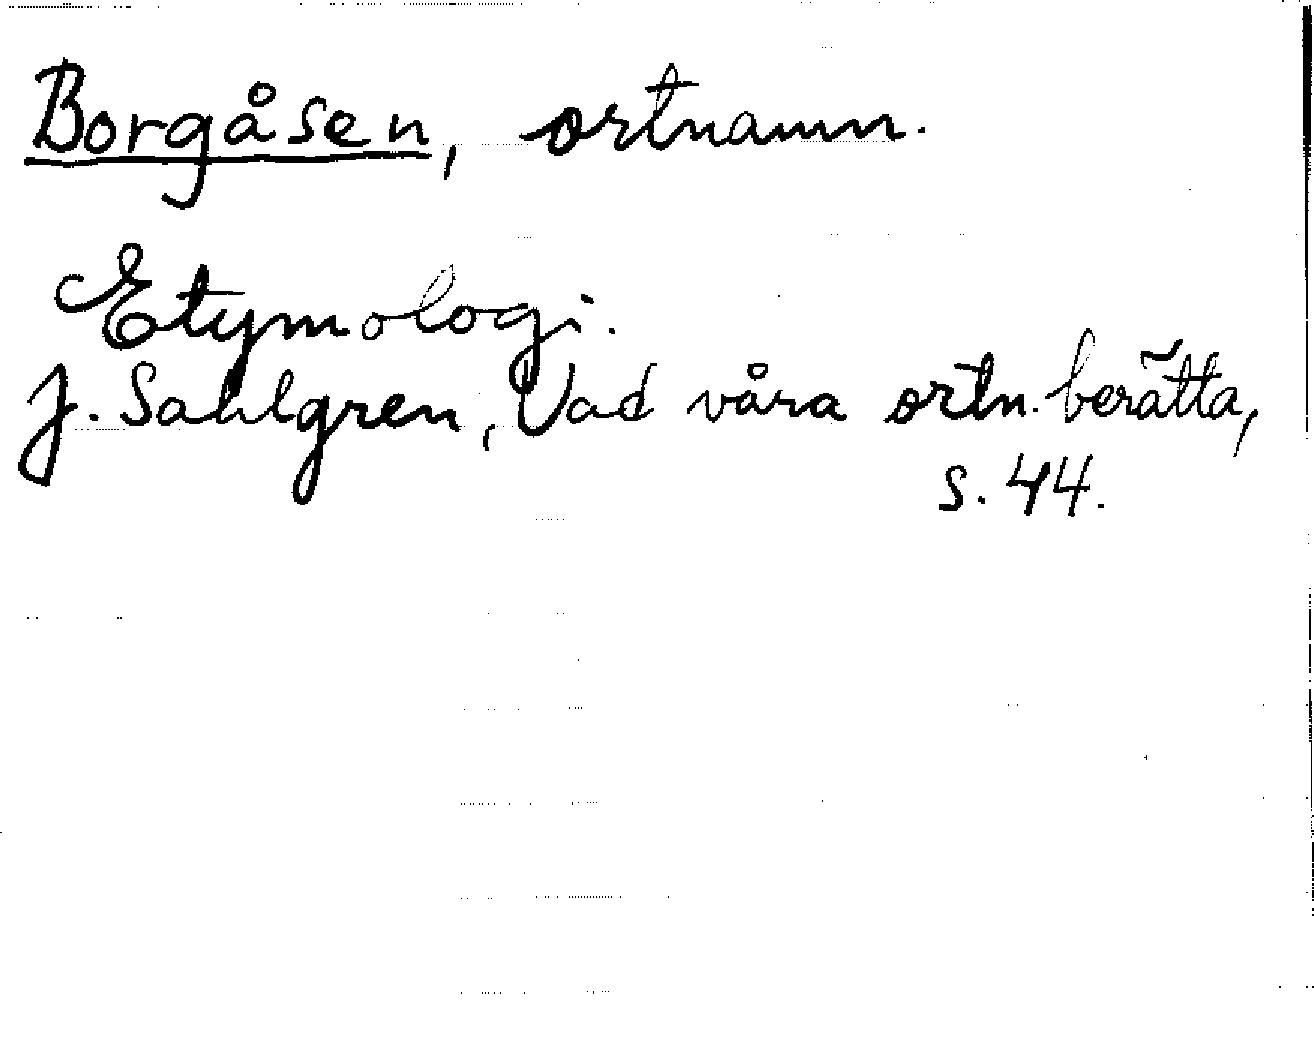 Borgåsen, ortnamn.
Etymologi.
J. Sahlgren, Vad våra ortn. berätta,
s. 44.